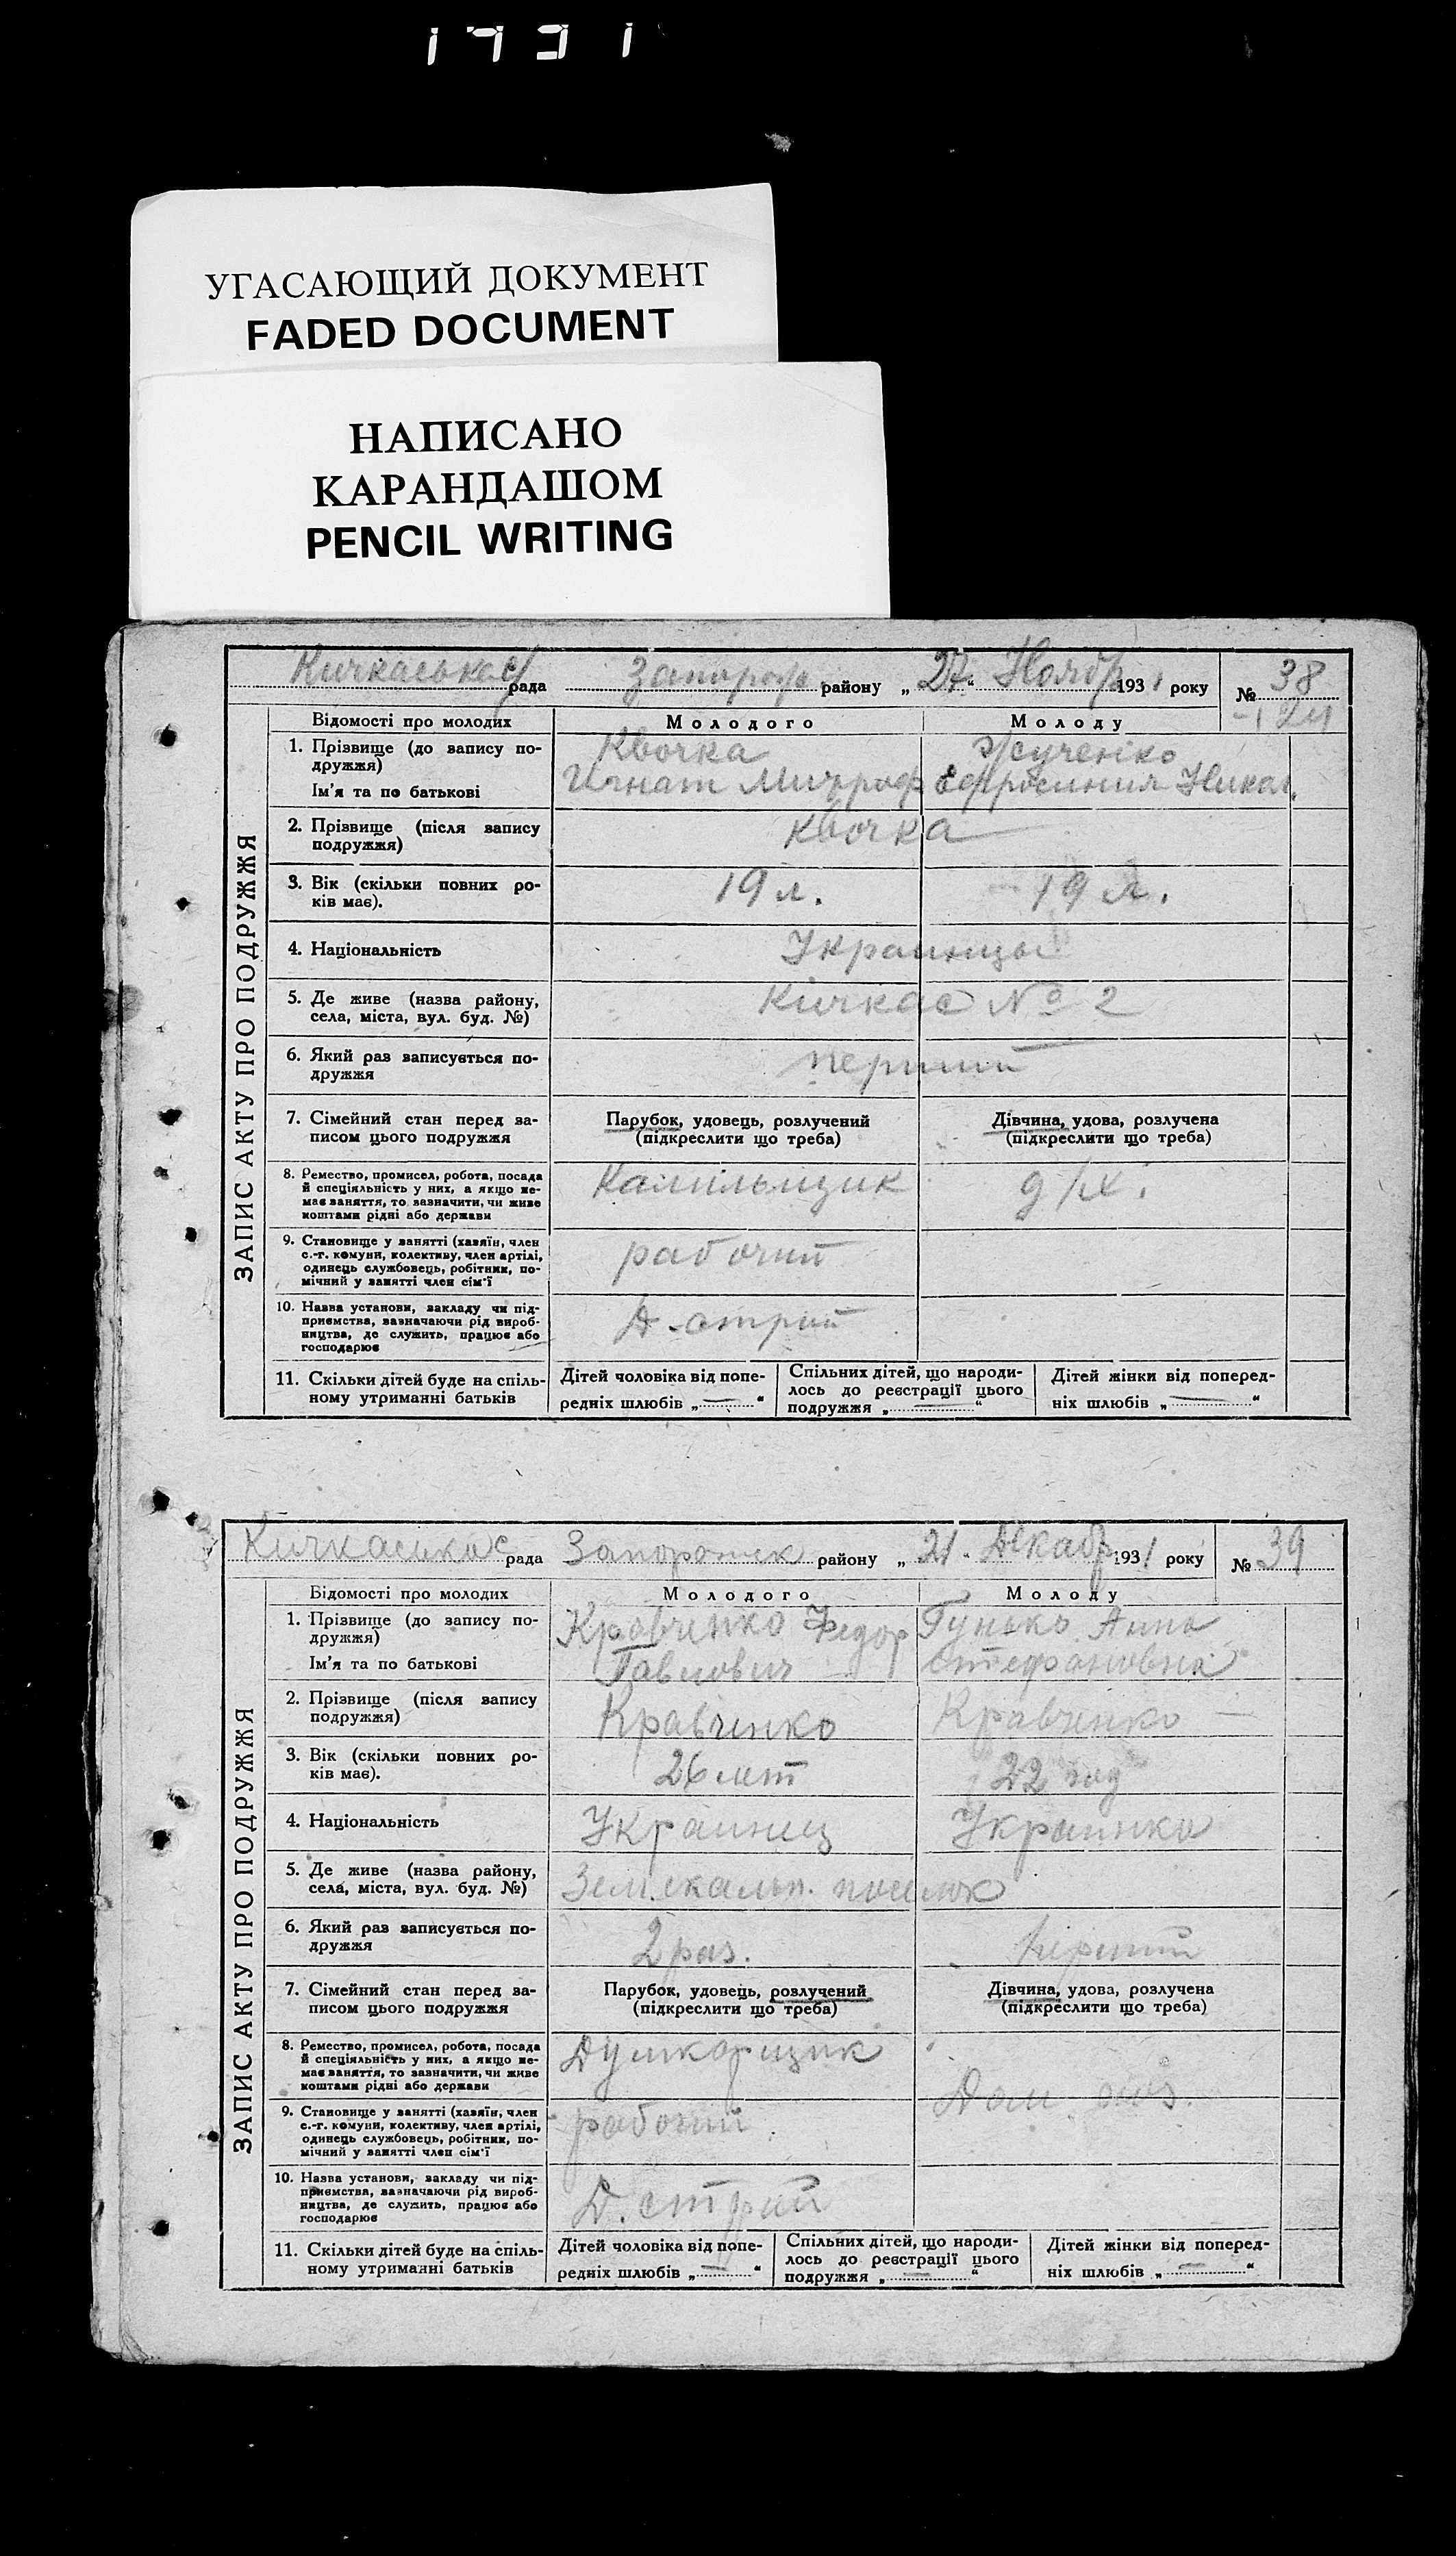 1931
УГАСАЮЩИЙ ДОКУМЕНТ
FADED DOCUMENT
НАПИСАНО
КАРАНДАШОМ
PENCIL WRITING
ЗАПИС АКТУ ПРО ПОДРУЖЖЯ
Кичкаська с/рада Запорож. району „27“ Ноябр 1931 року № 38
Відомості про молодих Молодого Молоду
1. Прізвище (до запису по- Квочка
дружжя)
Ім'я та по батькові Игнат Ефросиния Никол.
2. Прізвище (після запису Квочка
подружжя)
3. Вік (скільки повних ро- 19 л. 19 л.
ків має).
4. Національність Украинцы
5. Де живе (назва району, Кичкас № 2
села, міста, вул. буд. №)
6. Який раз записується по- перший
дружжя
7. Сімейний стан перед за- Парубок, удовець, розлучений Дівчина, удова, розлучена
писом цього подружжя (підкреслити що треба) (підкреслити що треба)
8. Ремество, промисел, робота, посада
й спеціяльність у них, а якщо не- д/х.
має заняття, то зазначити, чи живе
коштами рідні або держави
9. Становище у занятті (хазяїн, член
с.-г. комуни, колективу, член артілі, рабочий
одинець службовець, робітник, по-
мічний у занятті член сім'ї
10. Назва установи, закладу чи під-
приємства, зазначаючи рід вироб- Д-строй
ництва, де служить, працює або
господарює
11. Скільки дітей буде на спіль- Дітей чоловіка від попе- Спільних дітей, що народи- Дітей жінки від поперед-
ному утриманні батьків редніх шлюбів „—“ лось до реєстрації цього ніх шлюбів „—“
подружжя „—“
ЗАПИС АКТУ ПРО ПОДРУЖЖЯ
Кичкаська с рада Запорожск району „21“ Декабр 1931 року № 39
Відомості про молодих Молодого Молоду
1. Прізвище (до запису по- Кравченко Федор Гунько Анна
дружжя)
Ім'я та по батькові Павлович Стефановна
2. Прізвище (після запису Кравченко Кравченко
подружжя)
3. Вік (скільки повних ро- 26 лет 22 год
ків має).
4. Національність Украинец Украинка
5. Де живе (назва району, поселок
села, міста, вул. буд. №)
6. Який раз записується по- 2 раз. перший
дружжя
7. Сімейний стан перед за- Парубок, удовець, розлучений Дівчина, удова, розлучена
писом цього подружжя (підкреслити що треба) (підкреслити що треба)
8. Ремество, промисел, робота, посада
й спеціяльність у них, а якщо не-
має заняття, то зазначити, чи живе
коштами рідні або держави Дом. хоз.
9. Становище у занятті (хазяїн, член
с.-г. комуни, колективу, член артілі, рабочий
одинець службовець, робітник, по-
мічний у занятті член сім'ї
10. Назва установи, закладу чи під-
приємства, зазначаючи рід вироб- Д. строй
ництва, де служить, працює або
господарює
11. Скільки дітей буде на спіль- Дітей чоловіка від попе- Спільних дітей, що народи- Дітей жінки від поперед-
ному утриманні батьків редніх шлюбів „—“ лось до реєстрації цього ніх шлюбів „—“
подружжя „—“